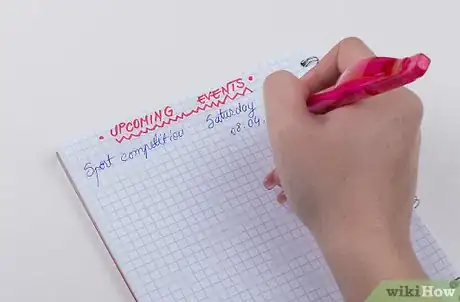 • UPCOMING EVENTS •
Sport competition Saturday
08.04.
wikiHow